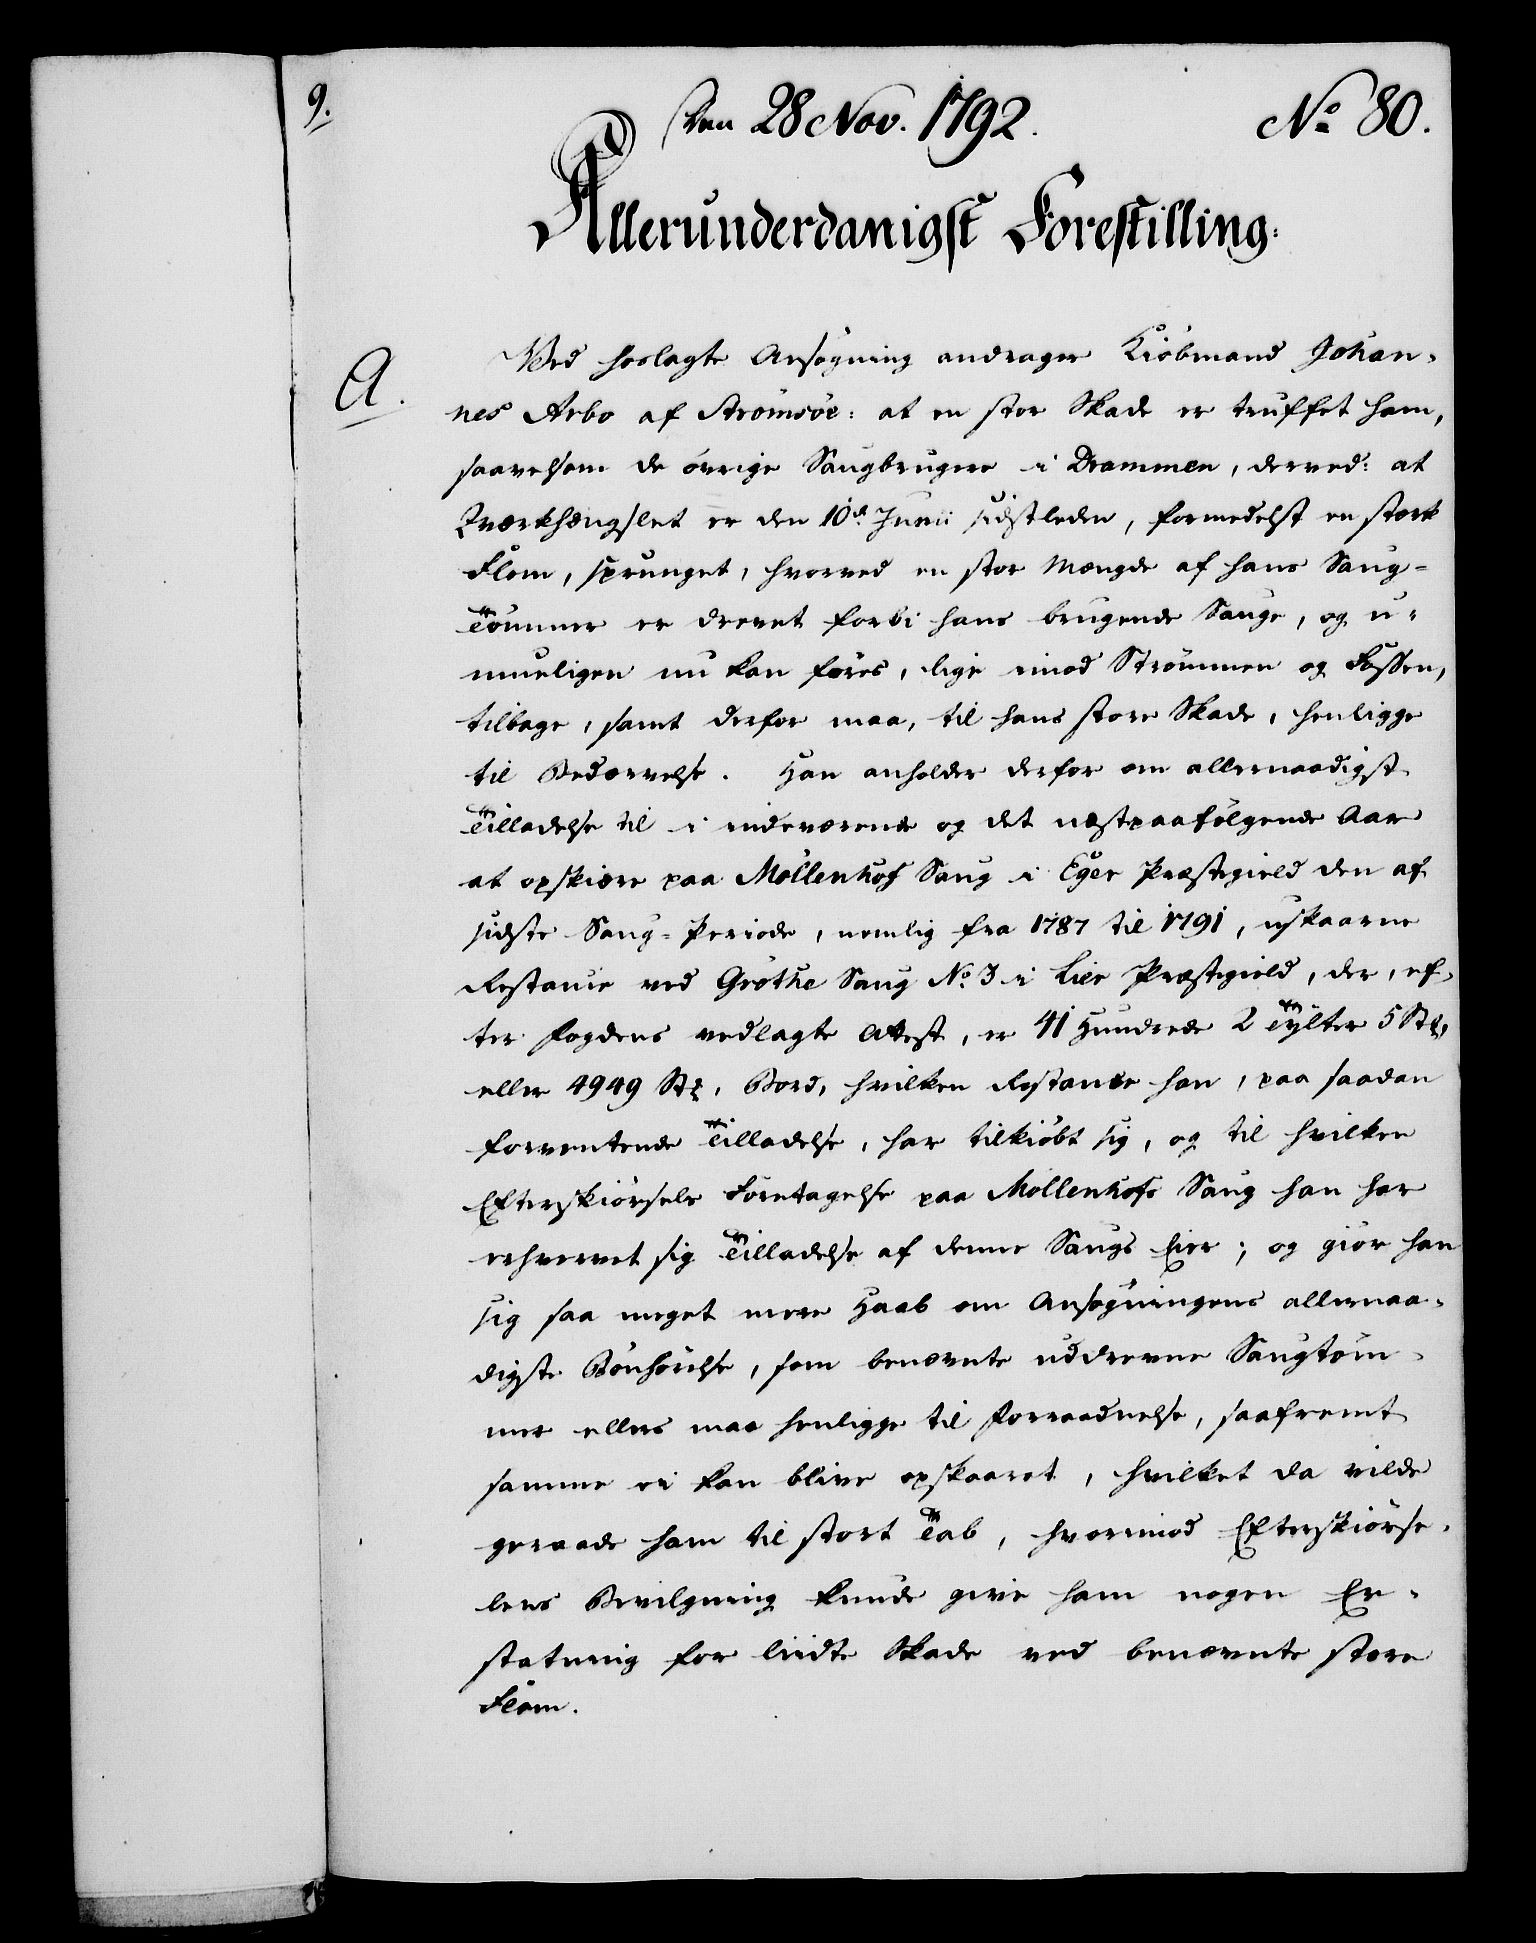 9.
Den 28 Nov. 1792.
No 80.
Allerunderdanigst Forestilling.
A.
Ved hoslagte Ansøgning andrager Kiöbmand Johan-
nes Arbo af Strömsöe: at en stor Skade er truffet ham,
saavelsom de övrige Saugbrugere i Drammen, derved: at
Qværkhængslet er den 10de Junii sidstleden, formedelst en stærk
Flom, sprunget, hvorved en stor Mængde af hans Saug-
Tömmer er drevet forbi hans brugende Sauge, og u-
mueligen nu kan föres, lige imod Strömmen og Fossen,
tilbage, samt derfor maa, til hans store Skade, henligge
til Bedærvelse. Han anholder derfor om allernaadigst
Tilladelse til i indeværende og det næstpaafölgende Aar
at opskiære paa Möllenhof Saug i Eger Præstegield den af
sidste Saug-Periode, nemlig fra 1787 til 1791, uskaarne
Restance ved Gröthe Saug No 3 i Lier Præstegield, der, ef-
ter Fogdens vedlagte Attest, er 41 Hundrede 2 Tylter 5 Stk,
eller 4949 Stk, Bord, hvilken Restance han, paa saadan
forventende Tilladelse, har tilkiöbt sig, og til hvilken
Efterskiörsels Foretagelse paa Möllenhofs Saug han har
erhvervet sig Tilladelse af denne Saugs Eier; og giör han
sig saa meget mere Haab om Ansøgningens allernaa-
digste Bönhörelse, som benævnte uddrevne Saugtöm-
mer ellers maa henligge til Forraadnelse, saafremt
samme ei kan blive opskaaret, hvilket da vilde
geraade ham til stort Tab, hvorimod Efterskiörse-
lens Bevilgning kunde give ham nogen Er-
statning for liidte Skade ved benævnte store
Flom.